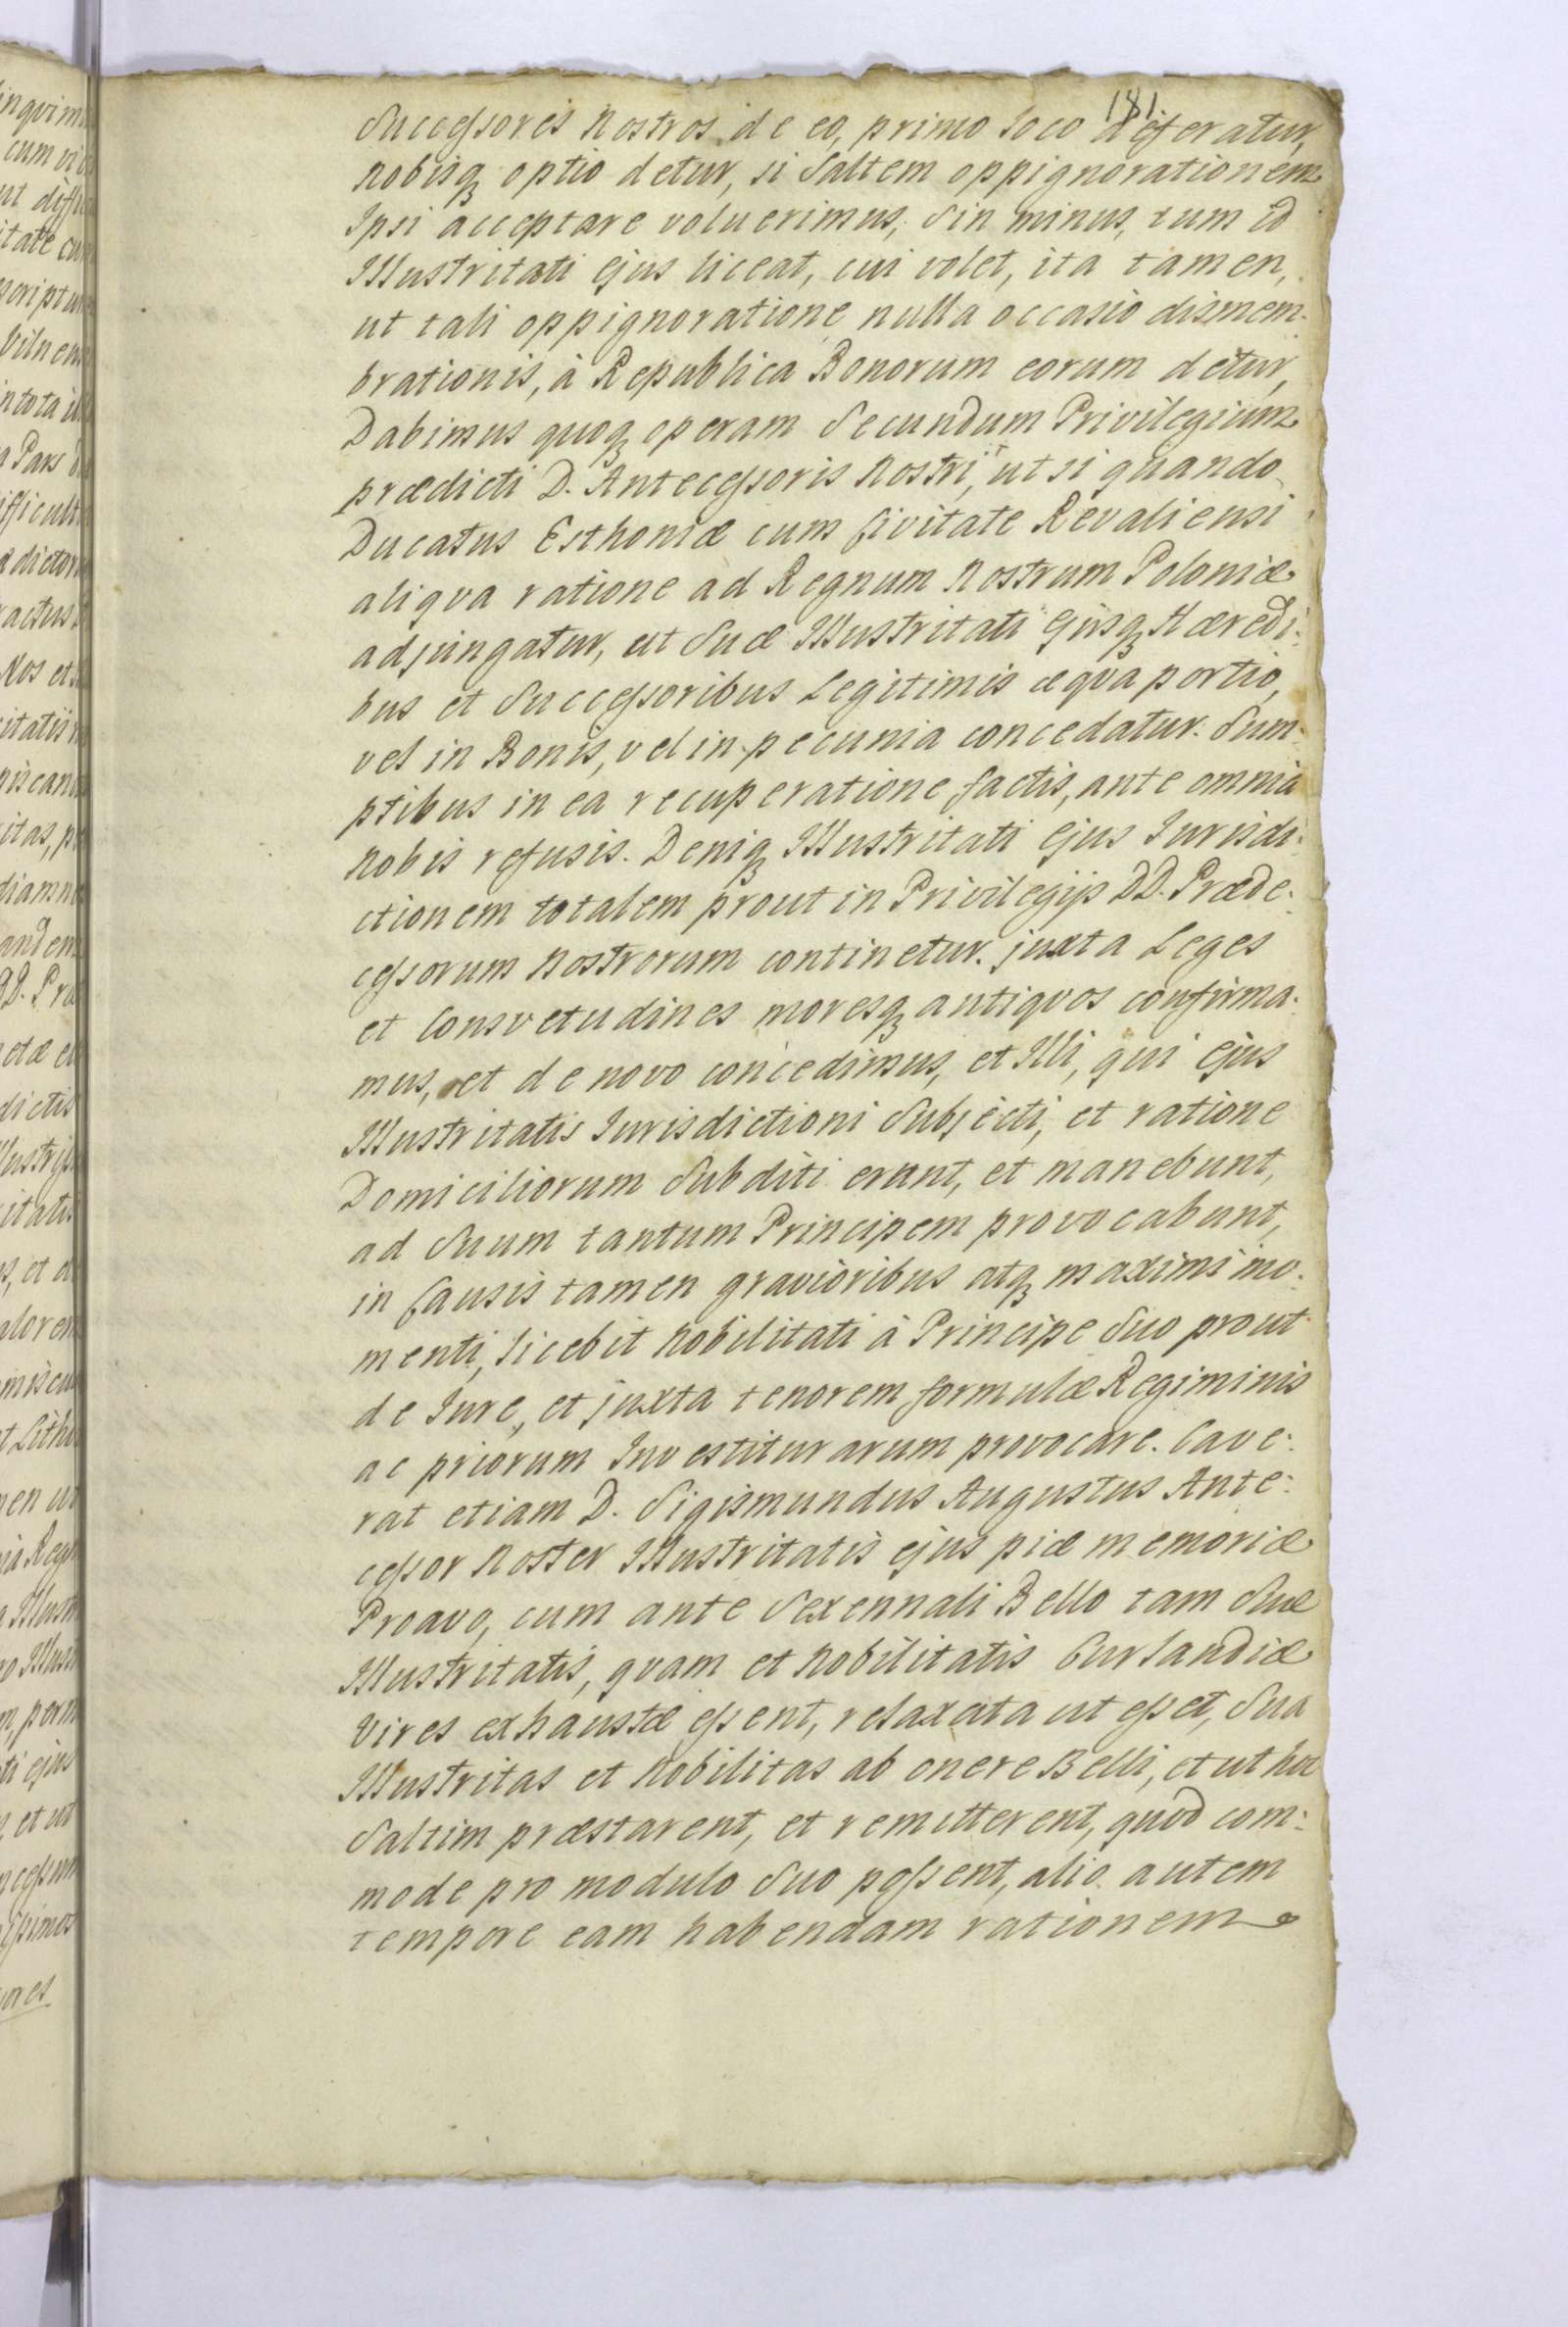 181.
Successores Nostros de eo, primo loco deferatur,
Nobisq; optio detur, si Saltem oppignorationem
Ipsi acceptare voluerimus, Sin minus, tum id
Illustritati Ejus liceat, cui volet, ita tamen,
ut tali oppignoratione nulla occasio dismem-
brationis, à Republica Bonorum eorum detur,
Dabimus quoq; operam Secundum Privilegium
prædicti D. Antecessoris Nostri, ut si quando
Ducatus Esthoniæ cum Civitate Revaliensi
aliqva ratione ad Regnum Nostrum Poloniæ
adjungatur, ut Suæ Illustritati Ejusq; Hæredi:
bus et Successoribus Legitimis æqva portio,
vel in Bonis, vel in pecunia concedatur. Sum-
ptibus in ea recuperatione factis, ante omnia
Nobis refusis. Deniq; Illustritati Ejus Jurisdi:
ctionem totalem prout in Privilegijs DD. Præde:
cessorum Nostrorum continetur. juxta Leges
et Consvetudines moresq; antiqvos confirma:
mus, et de novo concedimus, et Illi, qui Ejus
Illustritatis Jurisdictioni Subjecti, et ratione
Domiciliorum Subditi erunt, et manebunt,
ad Suum tantum Principem provocabunt,
in Causis tamen gravioribus atq; maximi mo:
menti, licebit Nobilitati à Principe Suo prout
de Jure, et juxta tenorem formulæ Regiminis
ac priorum Investiturarum provocare. Cave:
rat etiam D. Sigismundus Augustus Ante:
cessor Noster Illustritatis ejus piæ memoriæ
Proavo, cum ante Sexennali Bello tam Suæ
Illustritatis, qvam et Nobilitatis Curlandiæ
Vires exhaustæ essent, relaxata ut esset, Sua
Illustritas et Nobilitas ab onere Belli, et ut hoc
Saltim præstarent, et remitterent, quod com:
mode pro modulo Suo possent, alio autem
tempore eam habendam rationem